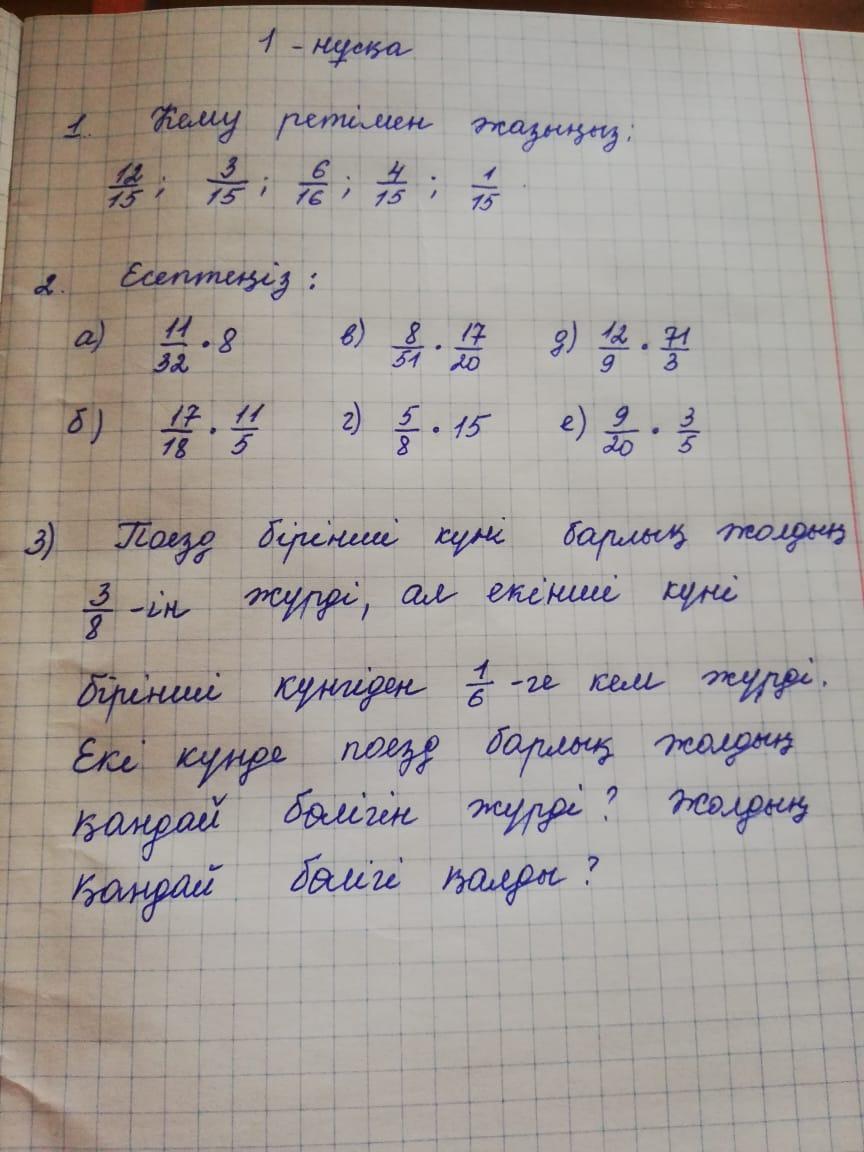 1 - нұсқа
1. Кему ретімен жазыңыз:
12/15; 3/15; 6/16; 4/15; 1/15
2. Есептеңіз:
а) 11/32 · 8 в) 8/51 · 17/20 д) 12/9 · 71/3
б) 17/18 · 11/5 г) 5/8 · 15 е) 9/20 · 3/5
3) Поезд бірінші күні барлық жолдың
3/8 -ін жүрді, ал екінші күні
бірінші күнгіден 1/6 -ге кем жүрді.
Екі күнде поезд барлық жолдың
қандай бөлігін жүрді? Жолдың
қандай бөлігі қалды?